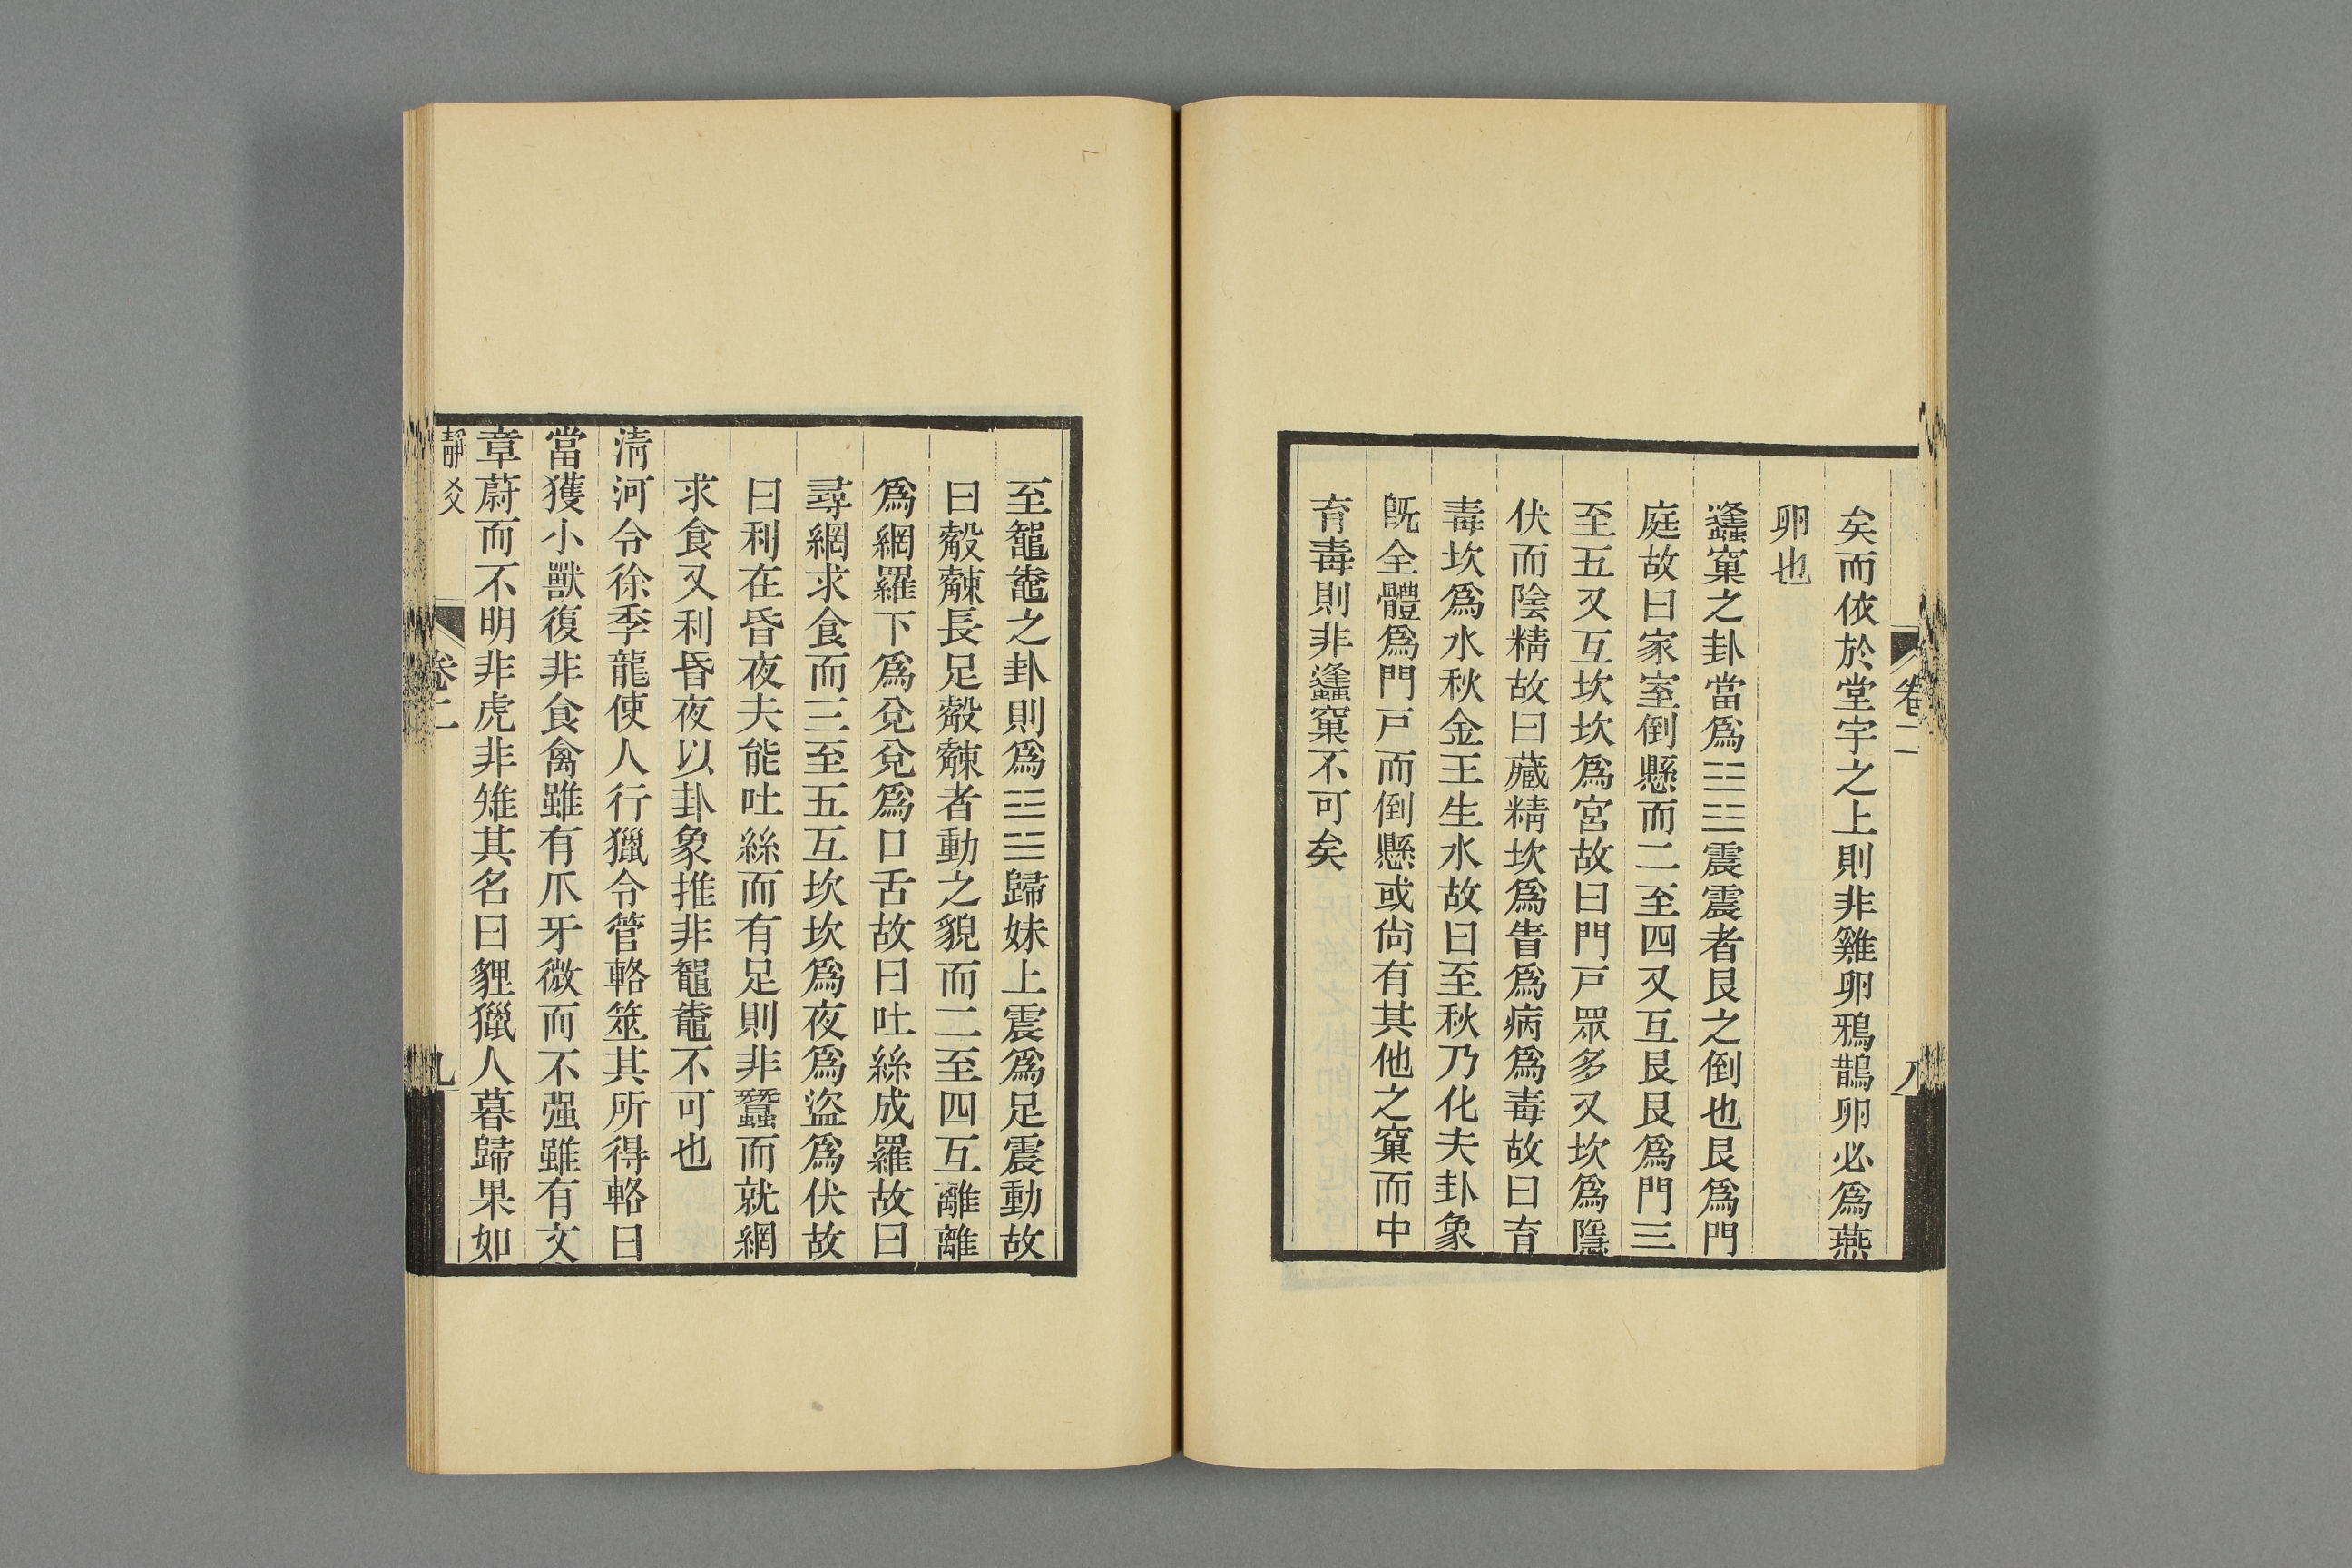 卷二
八
矣而依於堂宇之上則非雞卵鴉鵲卵必爲燕
卵也
蠭窠之卦當爲☳☳震震者艮之倒也艮爲門
庭故曰家室倒懸而二至四又互艮艮爲門三
至五又互坎坎爲宮故曰門戸眾多又坎爲隱
伏而陰精故曰藏精坎爲眚爲病爲毒故曰育
毒坎爲水秋金王生水故曰至秋乃化夫卦象
旣全體爲門戸而倒懸或尙有其他之窠而中
育毒則非蠭窠不可矣
至鼅鼄之卦則爲☳☱歸妹上震爲足震動故
曰觳觫長足觳觫者動之貌而二至四互離離
爲網羅下爲兌兌爲口舌故曰吐絲成羅故曰
尋網求食而三至五互坎坎爲夜爲盜爲伏故
曰利在昏夜夫能吐絲而有足則非蠶而就網
求食又利昏夜以卦象推非鼅鼄不可也
淸河令徐季龍使人行獵令管輅筮其所得輅曰
當獲小獸復非食禽雖有爪牙微而不强雖有文
章蔚而不明非虎非雉其名曰貍獵人暮歸果如
靜爻
卷二
九